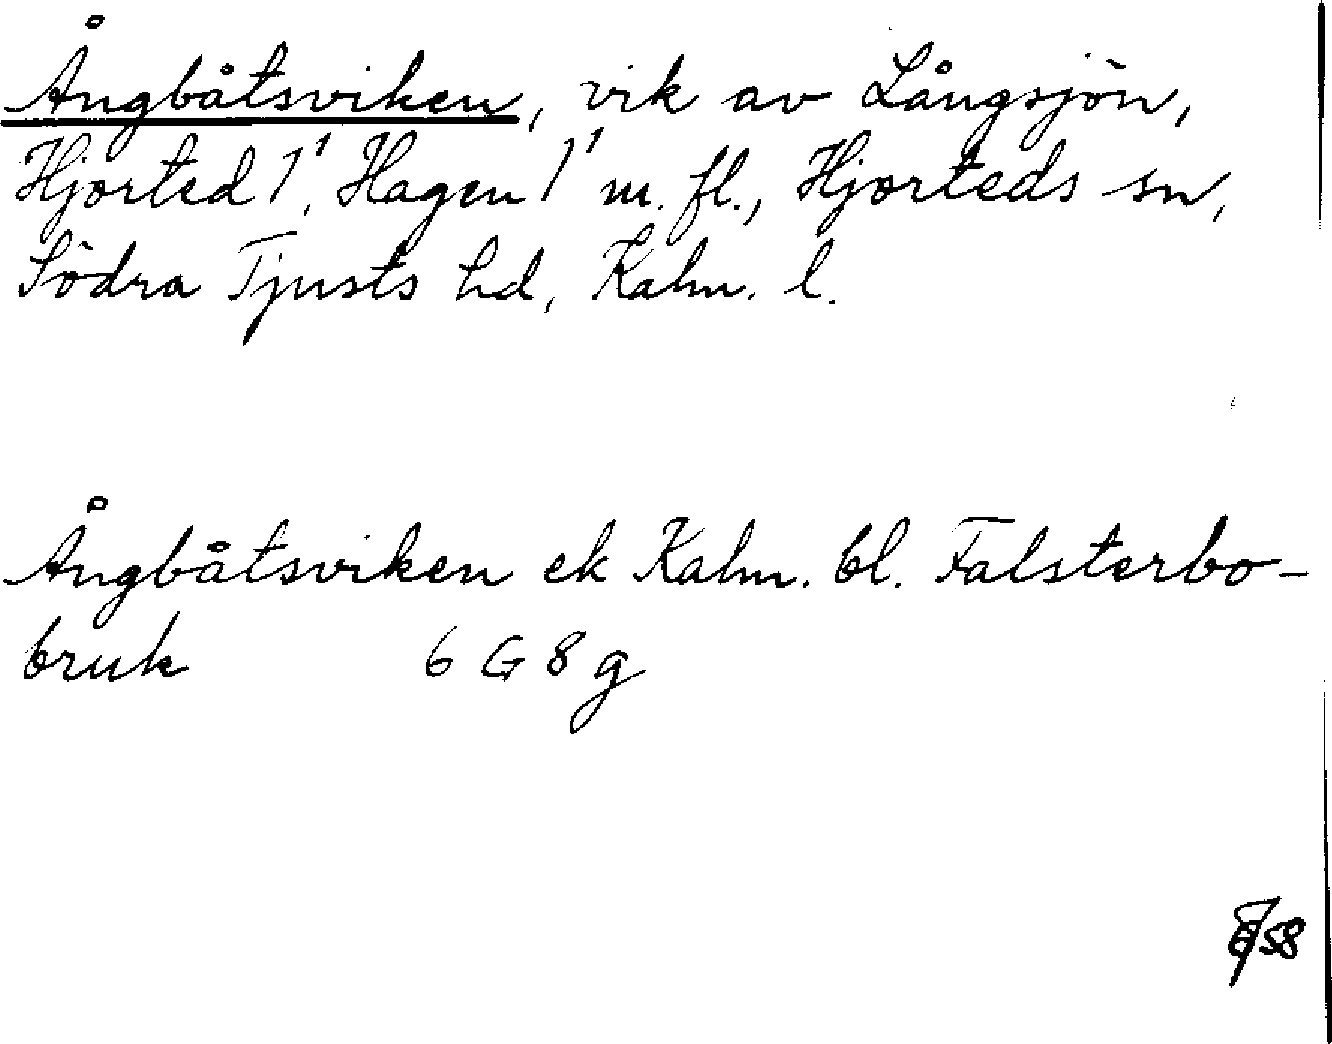 Ångbåtsviken, vik av Långsjön,
Hjorted 1¹, Hagen 1¹ m. fl., Hjorteds sn,
Södra Tjusts hd, Kalm. l.
Ångbåtsviken ek Kalm. bl. Falsterbo-
bruk 6 G 8 g
58